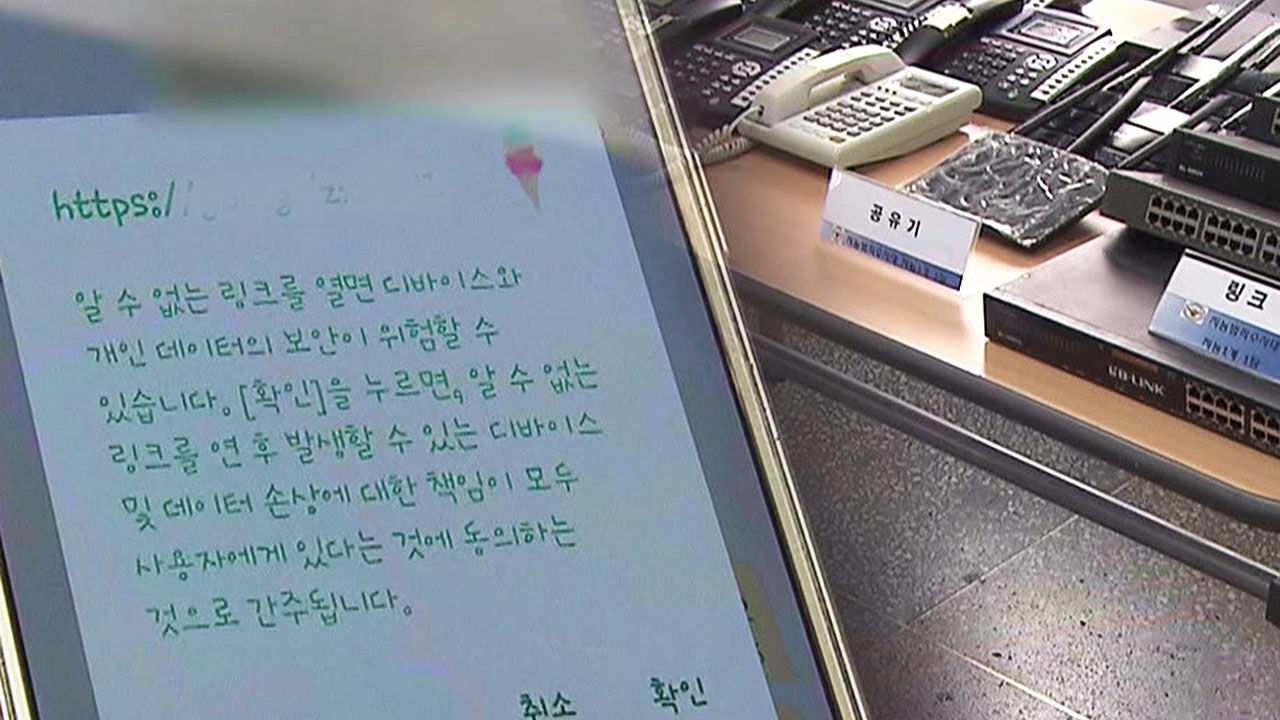 https:/
알 수 없는 링크를 열면 디바이스와
개인 데이터의 보안이 위험할 수
있습니다. [확인]을 누르면, 알 수 없는
링크를 연 후 발생할 수 있는 디바이스
및 데이터 손상에 대한 책임이 모두
사용자에게 있다는 것에 동의하는
것으로 간주됩니다.
취소 확인
공유기
링크